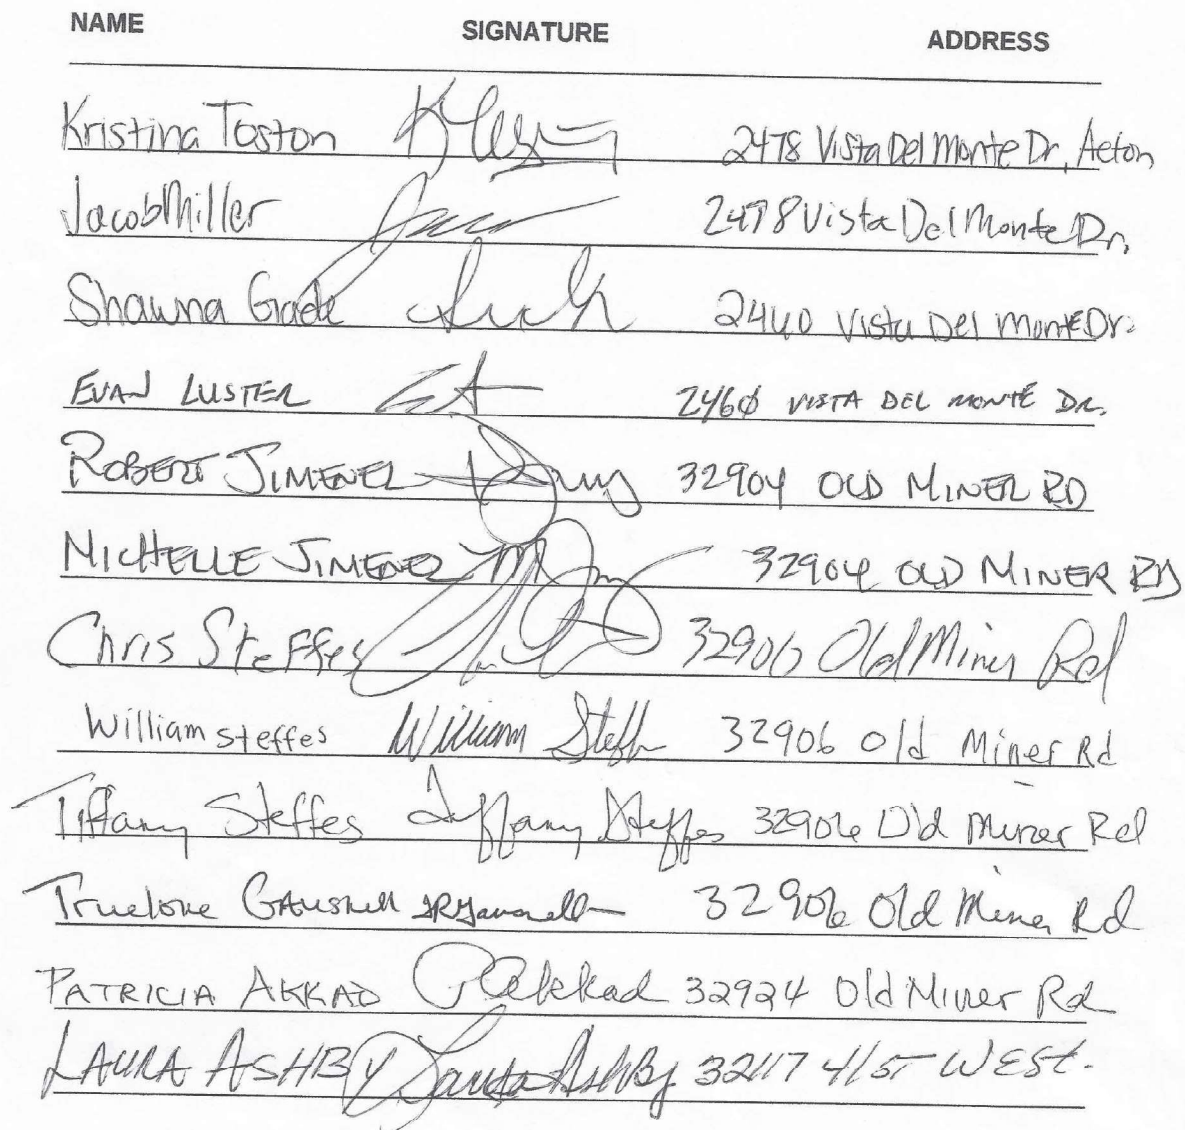 NAME SIGNATURE ADDRESS
Kristina Toston 2478 Vista Del Monte Dr, Acton
Jacob Miller 2478 Vista Del Monte Dr,
Shawna Gade 2440 Vista Del Monte Dr.
EVAN LUSTER 2460 VISTA DEL MONTE DR.
ROBERT JIMENEZ 32904 OLD MINER RD
MICHELLE JIMENEZ 32904 OLD MINER RD
Chris Steffes 32906 Old Miner Rd
William Steffes William Steff 32906 Old Miner Rd
Tiffany Steffes Tiffany Steffes 32906 Old Miner Rd
Truelove 32906 Old Miner Rd
PATRICIA AKKAD P Akkad 32924 Old Miner Rd
LAURA ASHBY Laura Ashby 32117 41st WEST.